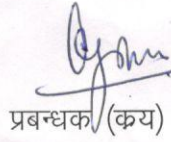 प्रबन्धक (क्रय)